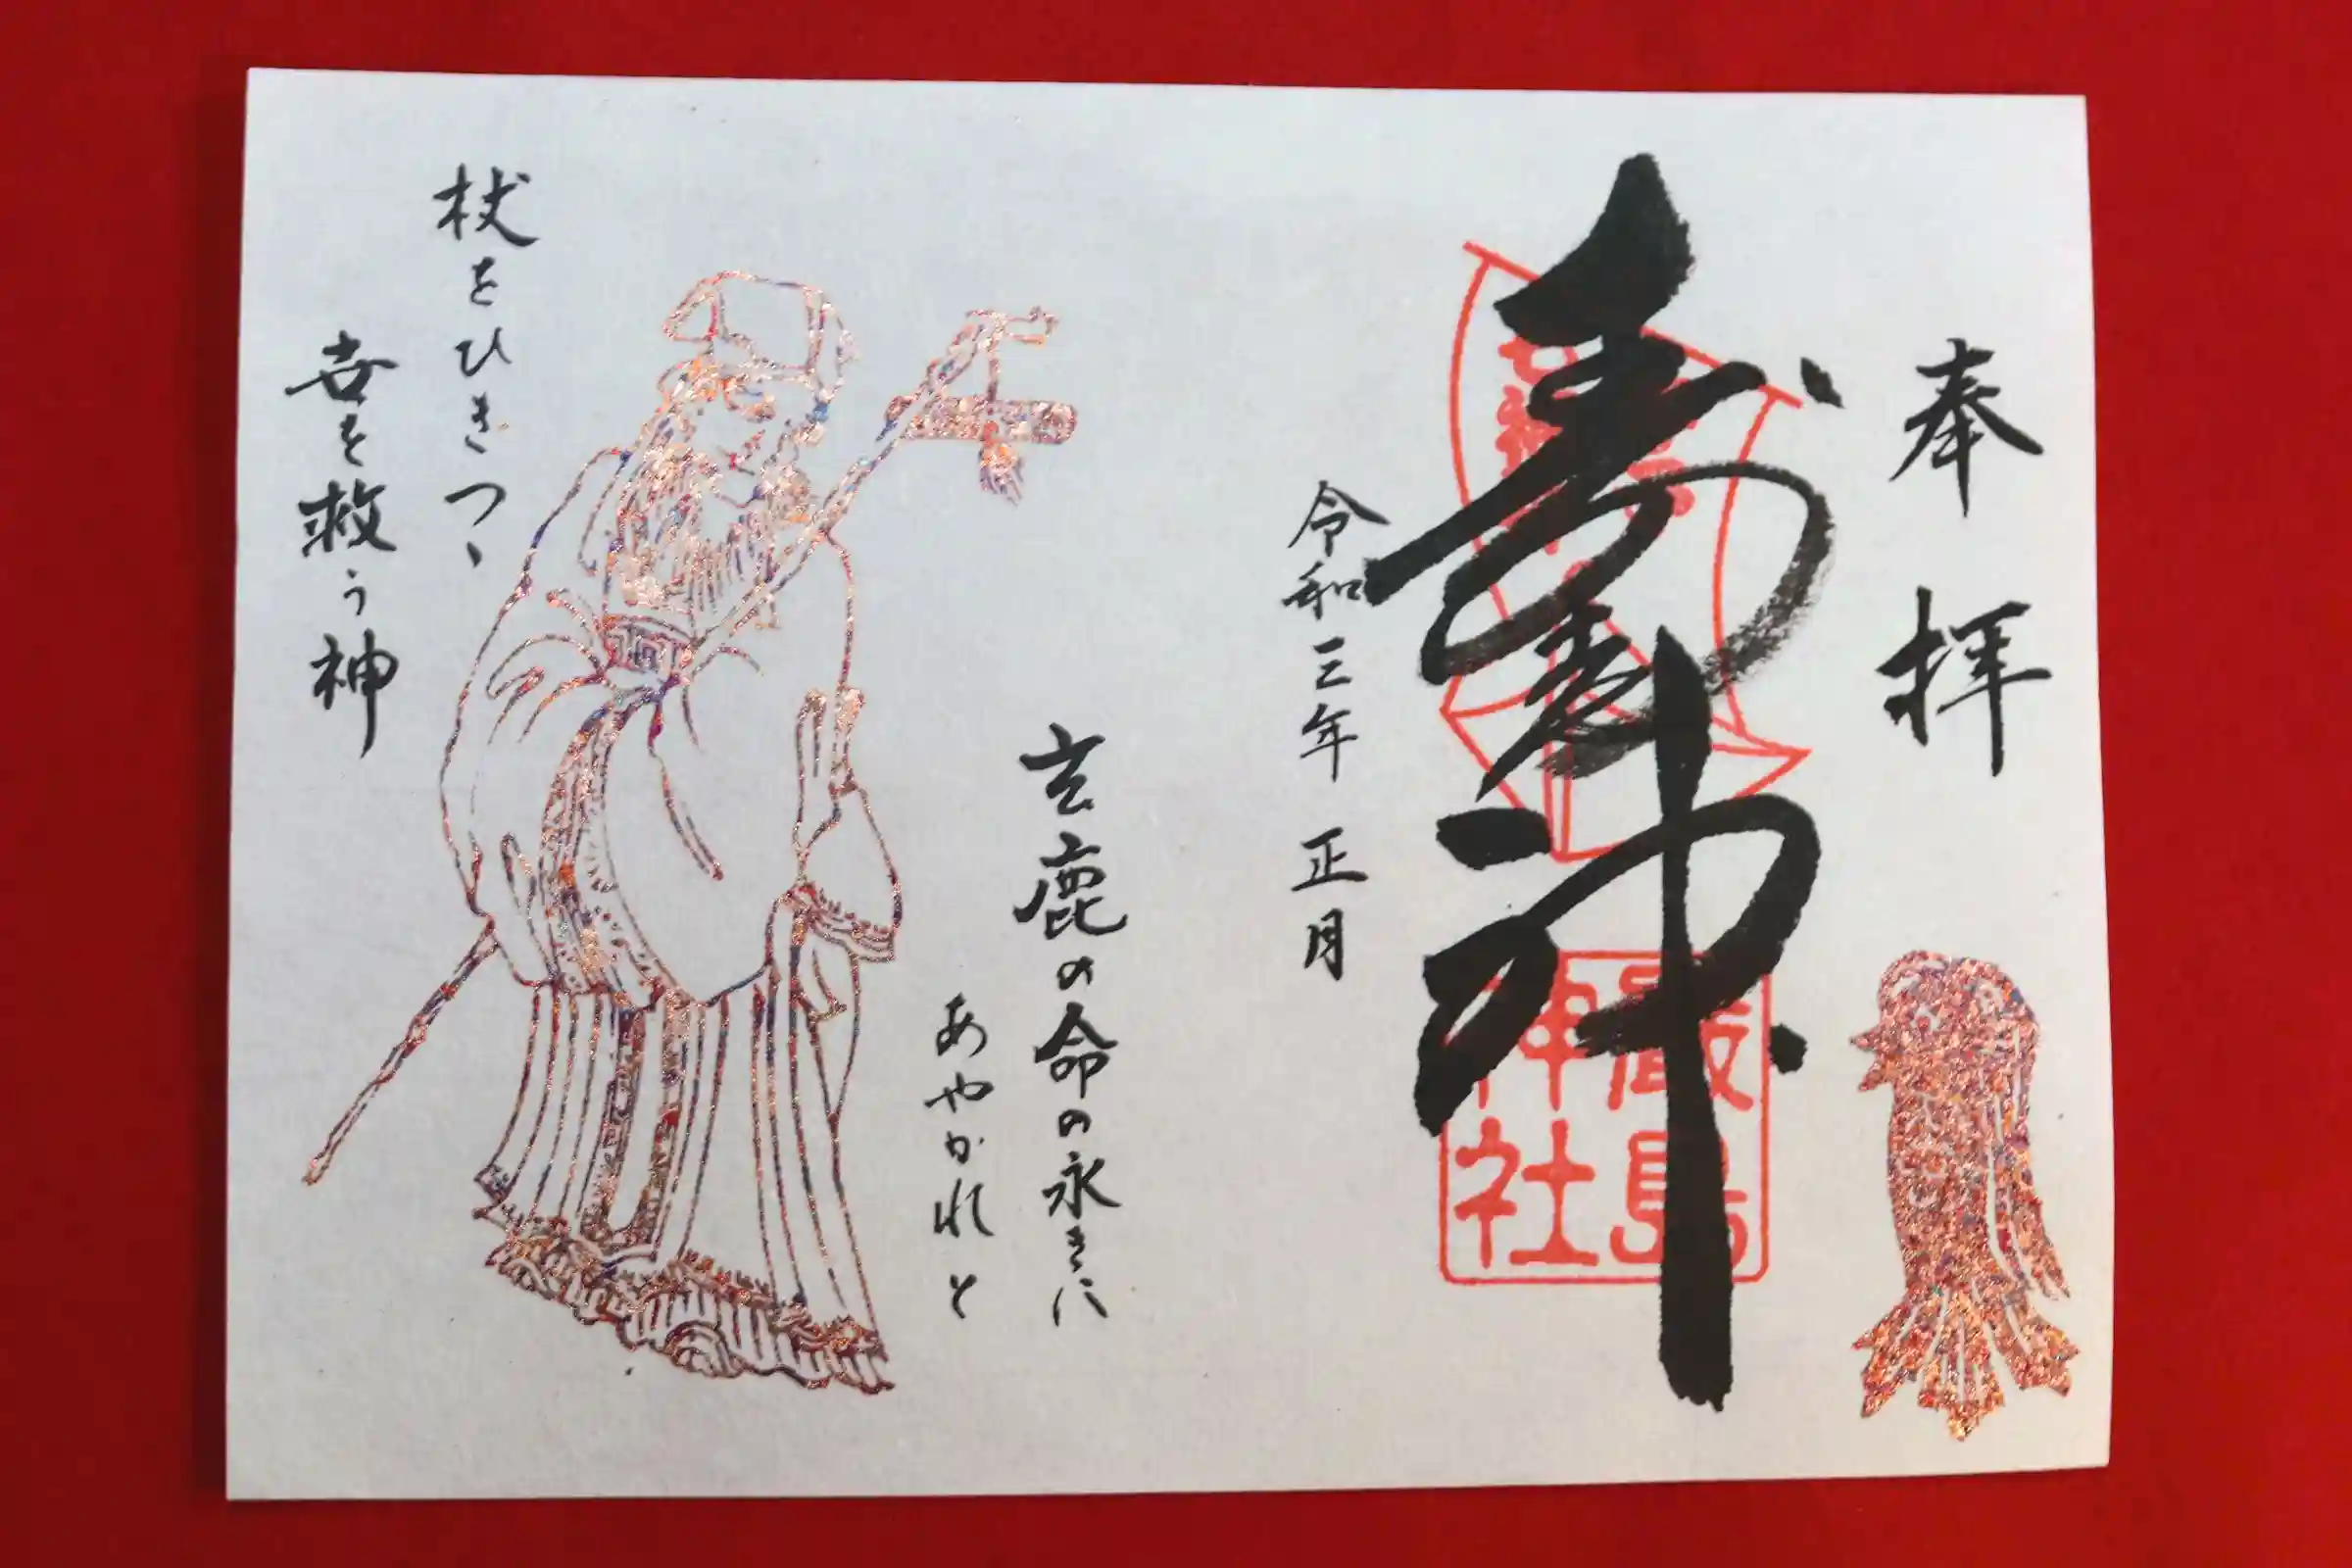 奉拝
寿老神
厳島
神社
令和三年 正月
玄鹿の命の永きに
あやかれと
杖をひきつゝ
世を救う神